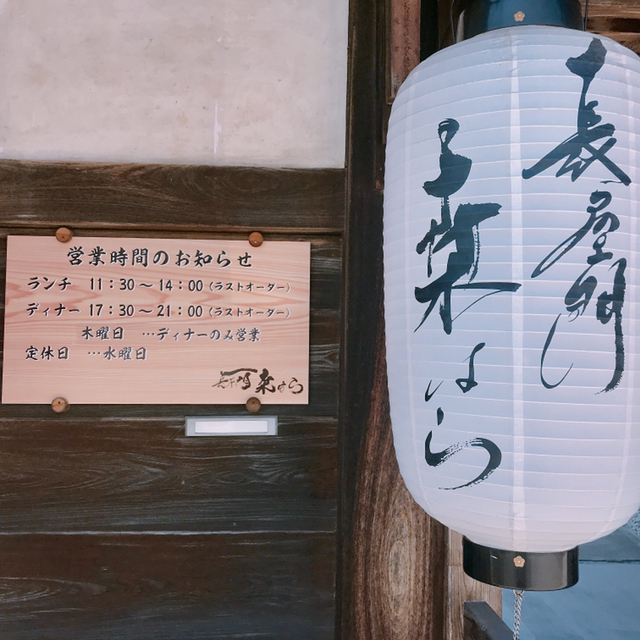 営業時間のお知らせ
ランチ 11：30～14：00（ラストオーダー）
ディナー 17：30～21：00（ラストオーダー）
木曜日 …ディナーのみ営業
定休日 …水曜日
長屋門
はら